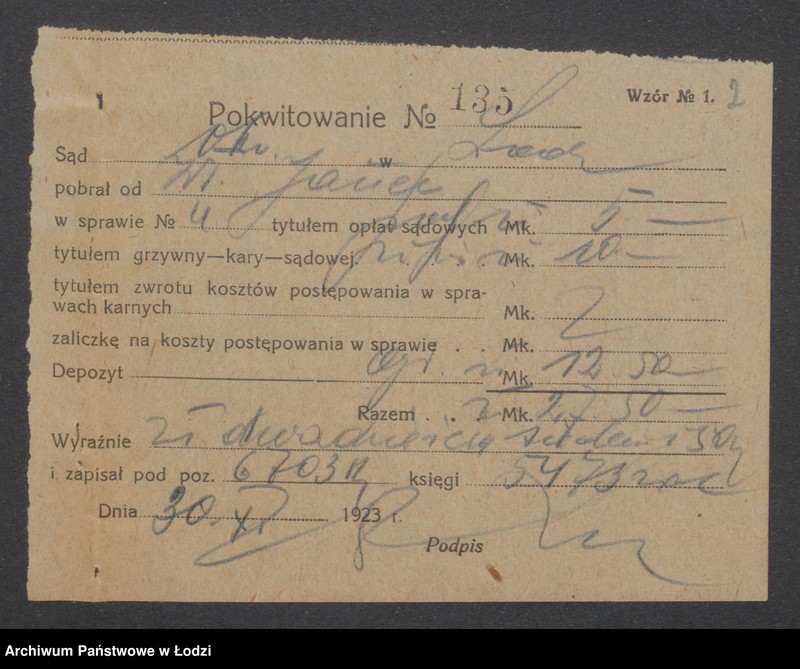 Wzór № 1. 2
Pokwitowanie № 135
Sąd Okr. w Łodzi
pobrał od
w sprawie № 4 tytułem opłat sądowych Mk. 5.—
tytułem grzywny—kary—sądowej. Mk. 10—
tytułem zwrotu kosztów postępowania w spra-
wach karnych Mk. 2
zaliczkę na koszty postępowania w sprawie . . Mk.
Depozyt Mk. 12 50—
Razem . . . Mk. 27.50—
Wyraźnie zł dwadzieścia siedem i 50
i zapisał pod poz. 6703 księgi 5473
Dnia 30.XI 1923 r.
Podpis
Archiwum Państwowe w Łodzi